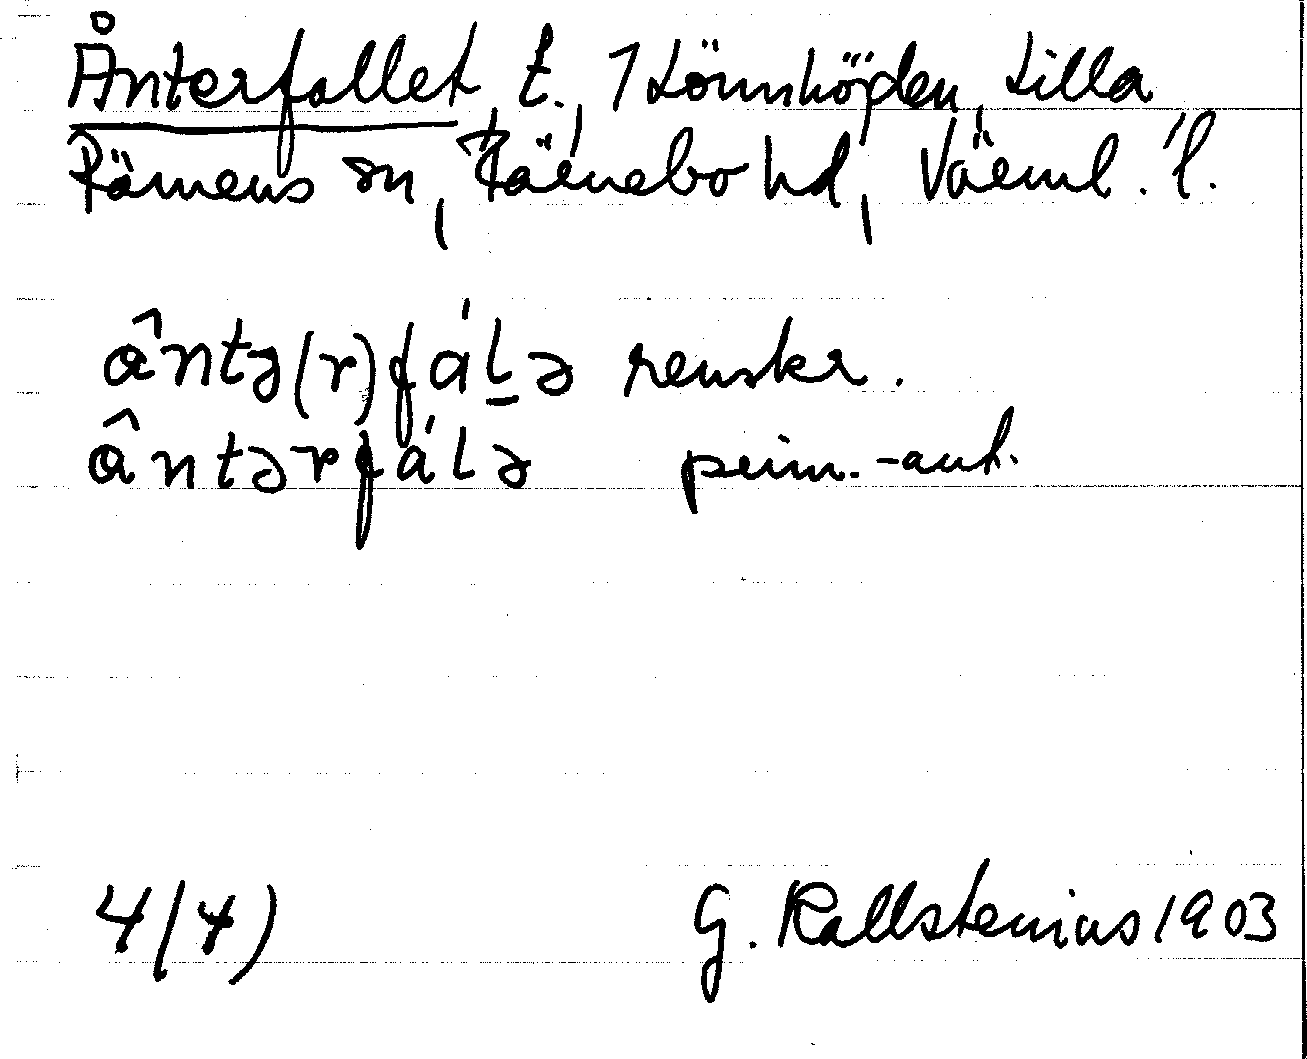 Ånterfallet, t., 1 Lönnhöjden, Lilla
Rämens sn, Färnebo hd, Värml. l.
ântə(r)fáḻə renskr.
ântərfálə prim.-aut.
4/4) G. Kallstenius 1903